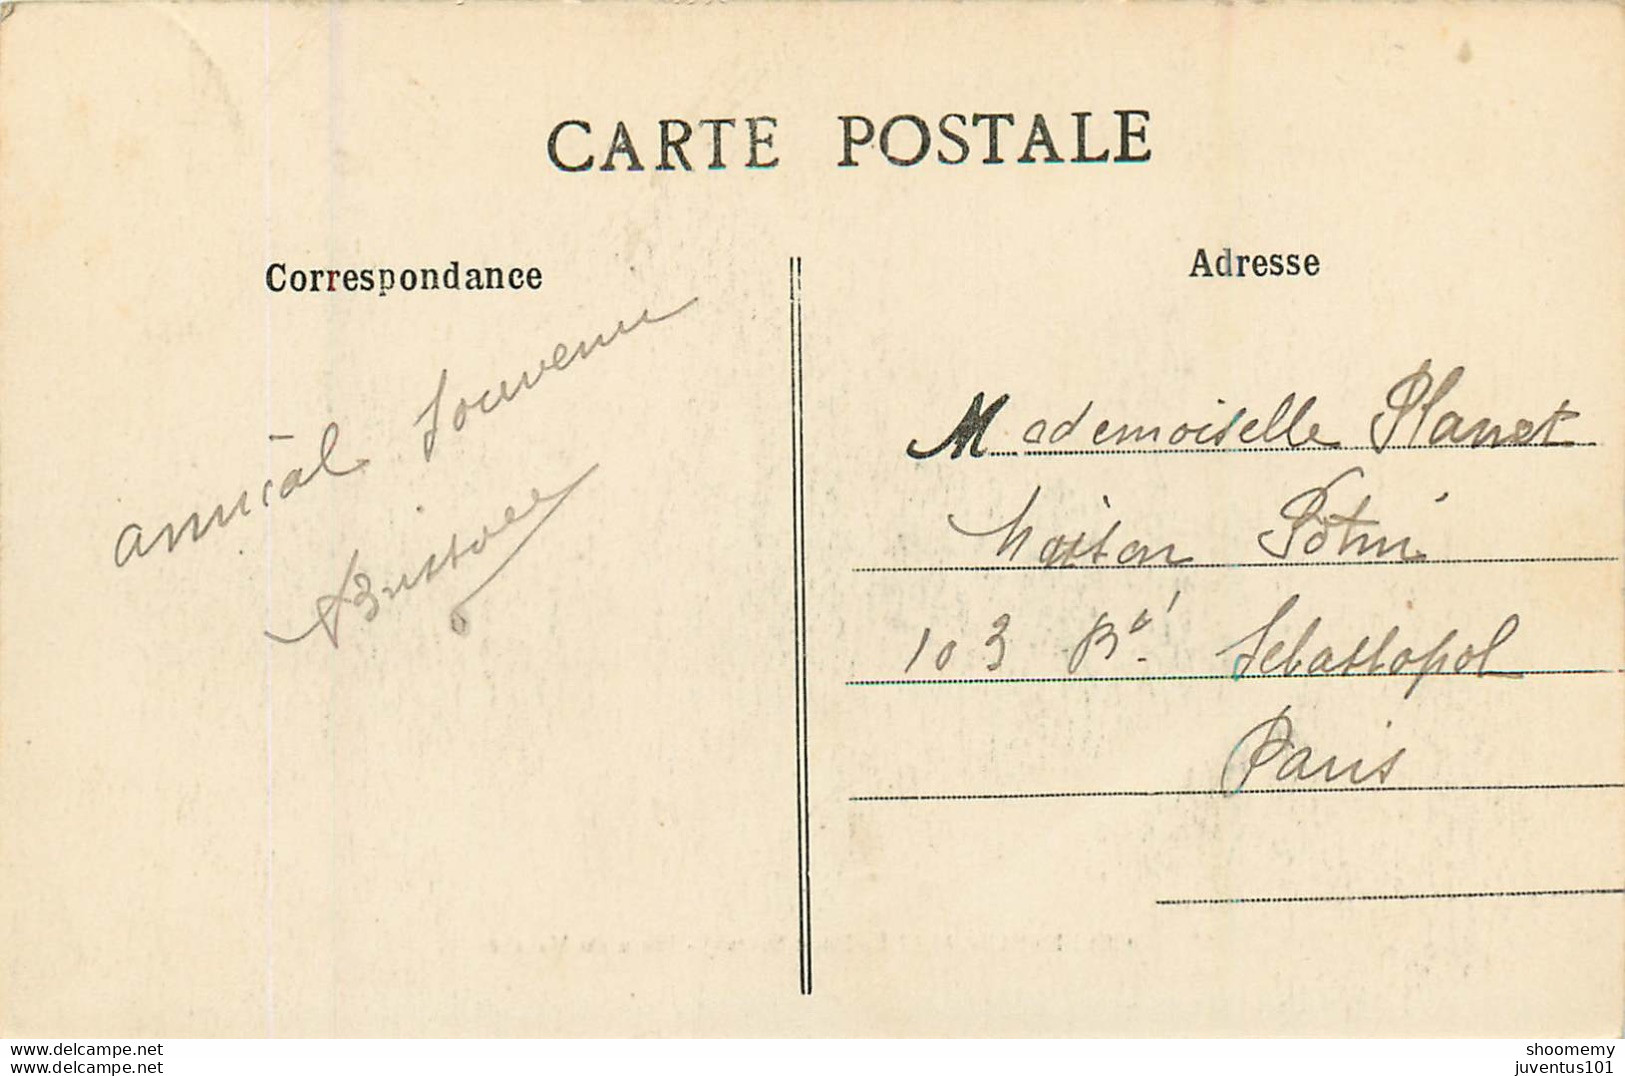 CARTE POSTALE
Correspondance
amical Souvenir
Adresse
Mademoiselle Planet
Maison Potin
103 Bd Sebastopol
Paris
www.delcampe.net
www.delcampe.net
shoomemy
juventus101